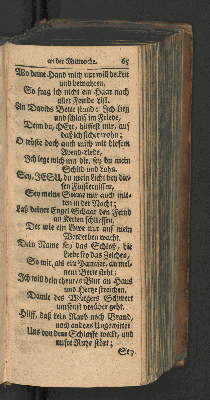 an der Mittwoche. 65
Wo deine Hand mich nur will decken
und bewahren,
So frag ich nicht ein Haar nach
aller Feinde List.
In Davids Bette stund: Ich lieg
und schlaff im Friede,
Denn du, HErr, hülffest mir, auf
daß ich sicher wohn;
O tröste doch auch mich mit diesem
Abend-Liede,
Ich lege mich um die, sey du mein
Schild und Lohn.
Sey, JESU, du mein Licht bey die-
sen Finsternissen,
Sey meine Sonne mir auch mit-
ten in der Nacht;
Laß deiner Engel Schaar den Feind
an Ketten schliessen,
Der wie ein Löwe nur auf mein
Verderben wacht.
Dein Name sey das Schloß, die
Liebe sey das Zeichen,
So mir, als ein Pannier, an mei-
nem Bette steht;
Ich will dein theures Blut an Haus
und Hertze streichen,
Damit des Würgers Schwert
umsonst vorüber geht.
Hilff, daß kein Raub noch Brand,
noch anders Ungewitter
Uns von dem Schlaffe weckt, und
unsre Ruhe stöhrt;
Sey